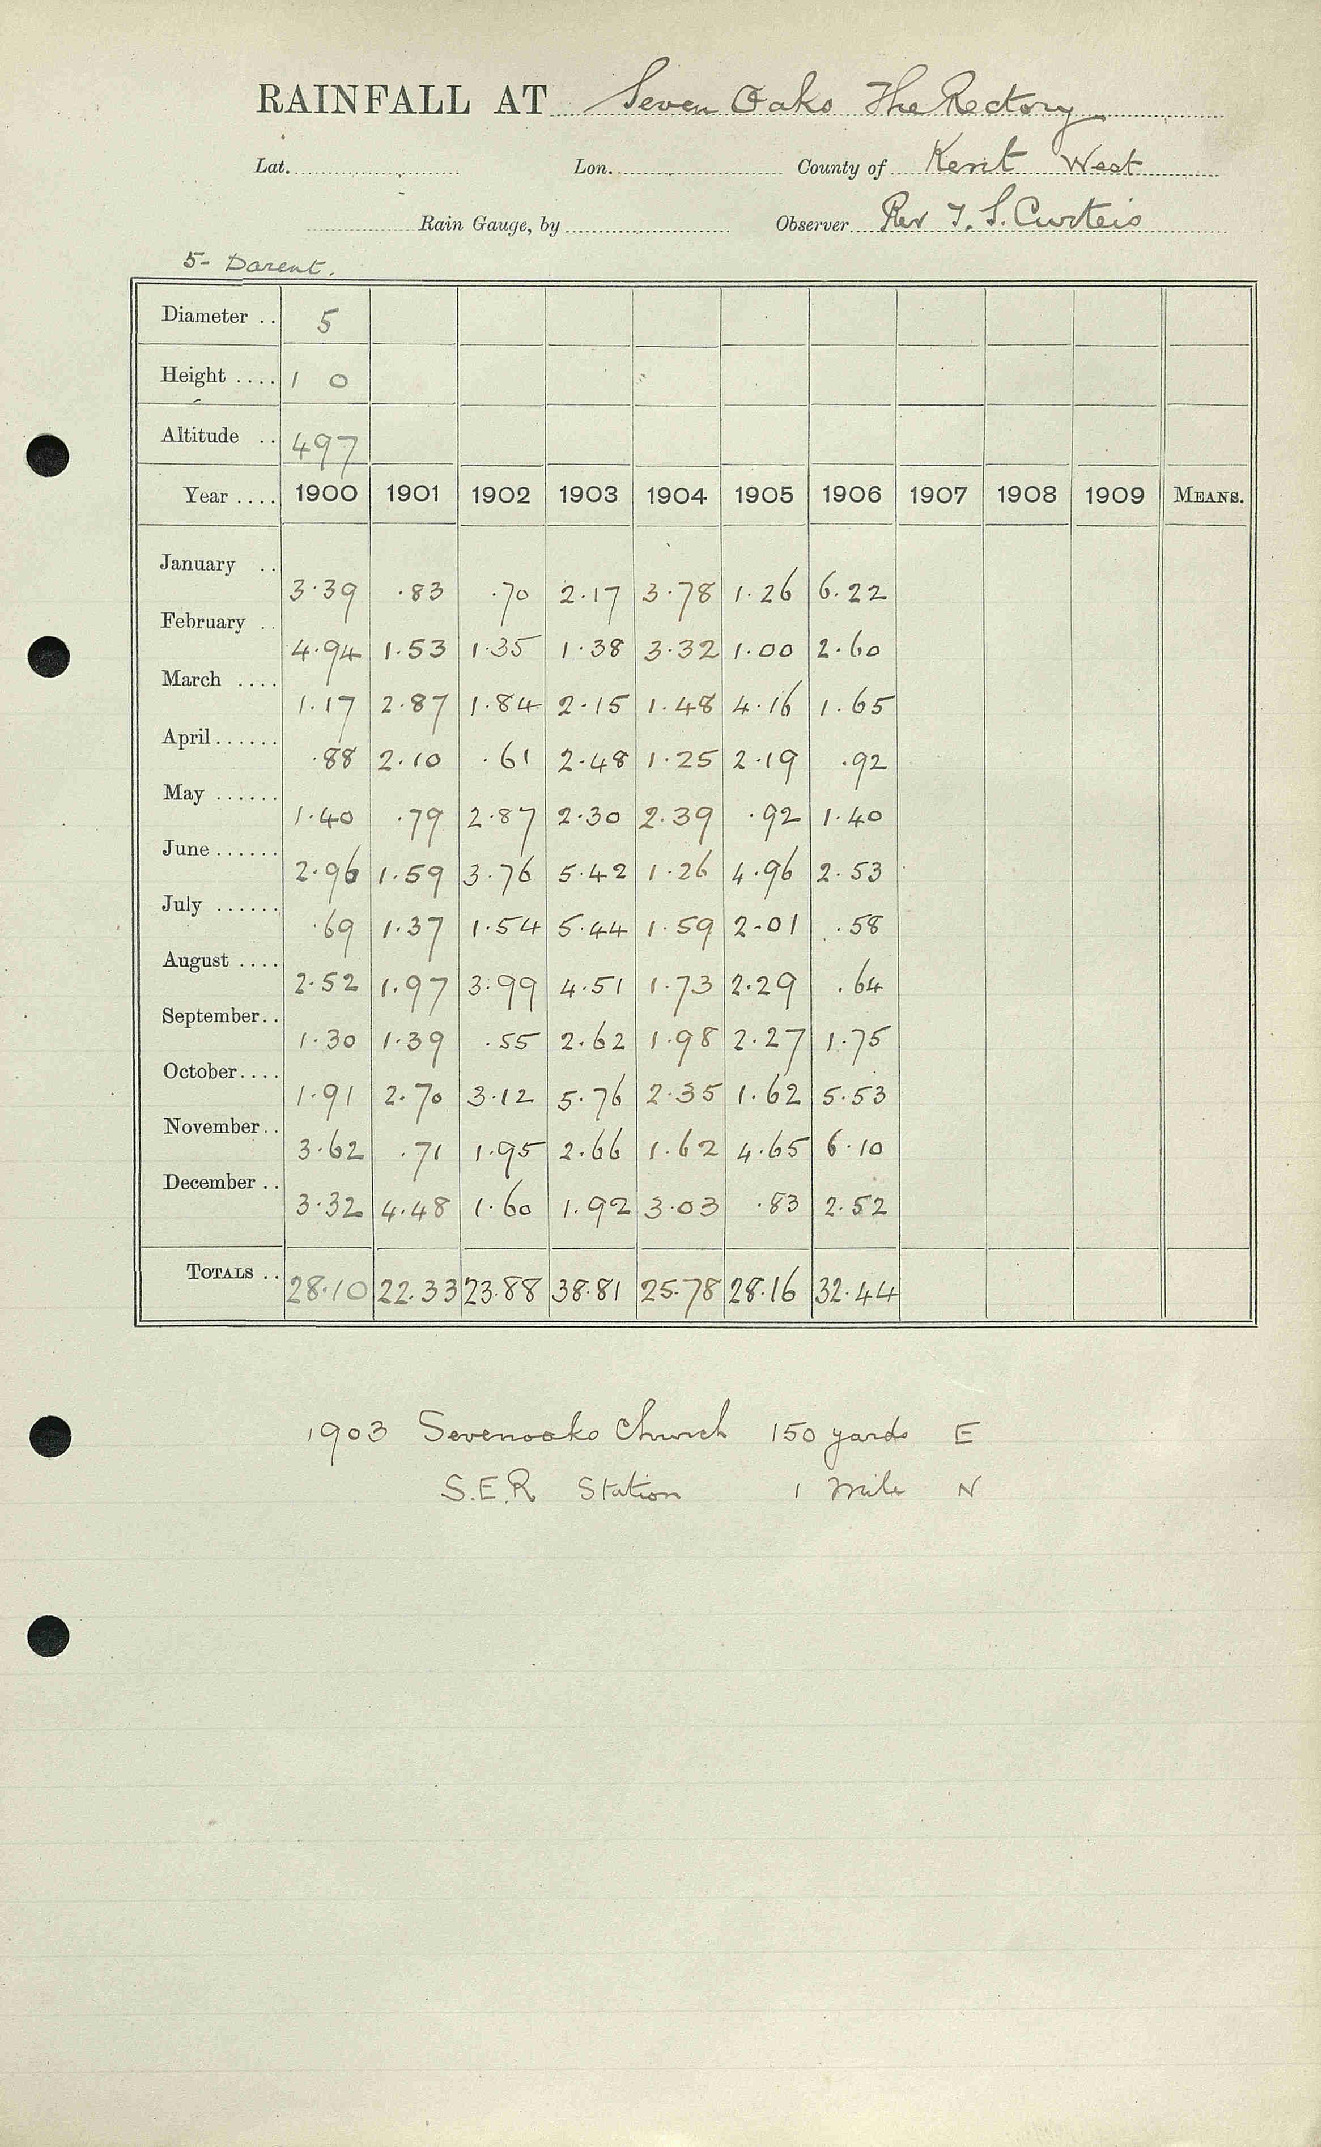 RAINFALL AT Seven Oaks The Rectory
Lat. Lon. County of Kent West
Rain Gauge, by Observer Rev T. S. Curteis
5- Darent.
Diameter .. 5
Height .... 1 0
Altitude .. 497
Year .... 1900 1901 1902 1903 1904 1905 1906 1907 1908 1909 MEANS.
January .. 3.39 .83 .70 2.17 3.78 1.26 6.22
February .. 4.94 1.53 1.35 1.38 3.32 1.00 2.60
March .... 1.17 2.87 1.84 2.15 1.48 4.16 1.65
April...... .88 2.10 .61 2.48 1.25 2.19 .92
May ...... 1.40 .79 2.87 2.30 2.39 .92 1.40
June...... 2.96 1.59 3.76 5.42 1.26 4.96 2.53
July ...... .69 1.37 1.54 5.44 1.59 2.01 .58
August .... 2.52 1.97 3.99 4.51 1.73 2.29 .64
September.. 1.30 1.39 .55 2.62 1.98 2.27 1.75
October.... 1.91 2.70 3.12 5.76 2.35 1.62 5.53
November.. 3.62 .71 1.95 2.66 1.62 4.65 6.10
December .. 3.32 4.48 1.60 1.92 3.03 .83 2.52
TOTALS .. 28.10 22.33 23.88 38.81 25.78 28.16 32.44
1903 Sevenoaks Church 150 yards E
S.E.R Station 1 mile N